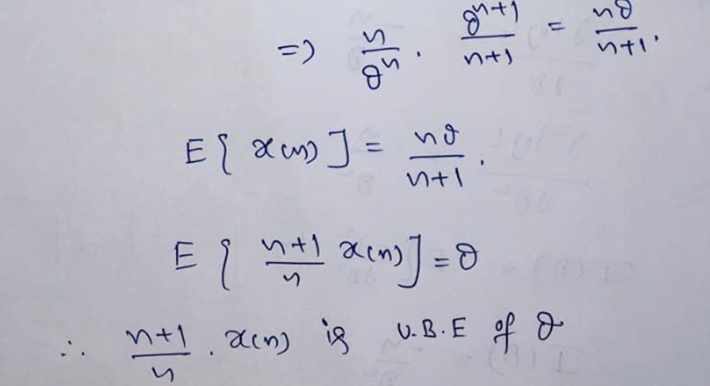 => n/θⁿ . θⁿ⁺¹/n+1 = nθ/n+1.
E[ x(n) ] = nθ/n+1.
E[ n+1/n x(n) ] = θ
∴ n+1/n . x(n) is U.B.E of θ